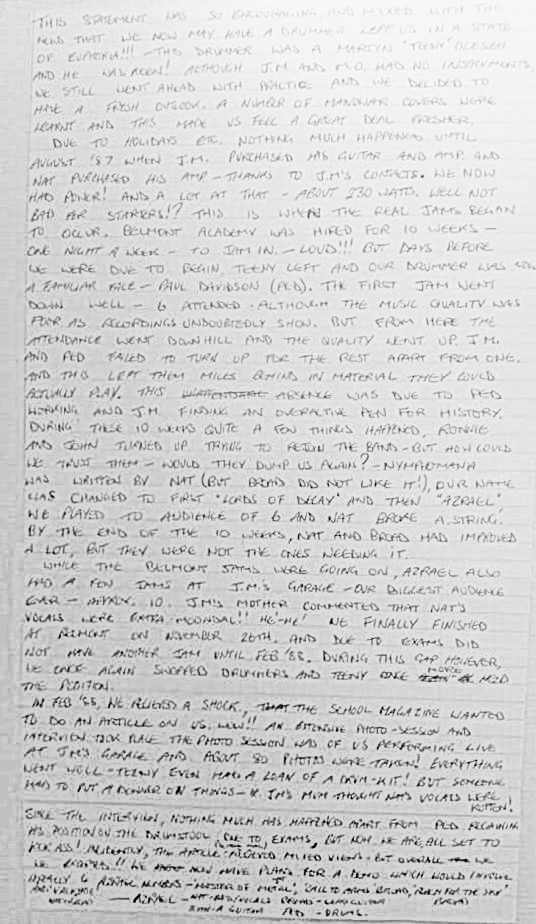 THIS STATEMENT WAS SO ENCOURAGING, AND MIXED WITH THE
NEWS THAT WE NOW MAY HAVE A DRUMMER LEFT US IN A STATE
OF EUPHORIA!!! - THIS DRUMMER WAS A MARTYN 'TEENY' OLESEN
AND HE WAS KEEN! ALTHOUGH J.M. AND M.O. HAD NO INSTRUMENTS,
WE STILL WENT AHEAD WITH PRACTICE AND WE DECIDED TO
HAVE A FRESH OUTLOOK. A NUMBER OF MANOWAR COVERS WERE
LEARNT AND THIS MADE US FEEL A GREAT DEAL FRESHER.
DUE TO HOLIDAYS ETC. NOTHING MUCH HAPPENED UNTIL
AUGUST '87 WHEN J.M. PURCHASED HIS GUITAR AND AMP AND
NAT PURCHASED HIS AMP - THANKS TO J.M'S CONTACTS. WE NOW
HAD POWER! AND A LOT AT THAT - ABOUT 230 WATTS. WELL NOT
BAD FOR STARTERS!? THIS IS WHERE THE REAL JAMS BEGAN
TO OCCUR. BELMONT ACADEMY WAS HIRED FOR 10 WEEKS -
ONE NIGHT A WEEK - TO JAM IN. - LOUD!!! BUT DAYS BEFORE
WE WERE DUE TO BEGIN, TEENY LEFT AND OUR DRUMMER WAS NOW
A FAMILIAR FACE - PAUL DAVIDSON (PED). THE FIRST JAM WENT
DOWN WELL - 6 ATTENDED - ALTHOUGH THE MUSIC QUALITY WAS
POOR AS RECORDINGS UNDOUBTEDLY SHOW. BUT FROM HERE THE
ATTENDANCE WENT DOWNHILL AND THE QUALITY WENT UP. J.M.
AND PED FAILED TO TURN UP FOR THE REST APART FROM ONE.
AND THIS LEFT THEM MILES BEHIND IN MATERIAL THEY COULD
ACTUALLY PLAY. THIS ABSENCE WAS DUE TO PED
WORKING AND J.M. FINDING AN OVERACTIVE PEN FOR HISTORY.
DURING THESE 10 WEEKS QUITE A FEW THINGS HAPPENED, RONNIE
AND JOHN TURNED UP TRYING TO REJOIN THE BAND - BUT HOW COULD
WE TRUST THEM - WOULD THEY DUMP US AGAIN? - NYMPHOMANIA
WAS WRITTEN BY NAT (BUT BROAD DID NOT LIKE IT!), OUR NAME
WAS CHANGED TO FIRST 'LORDS OF DECAY' AND THEN "AZRAEL'
WE PLAYED TO AUDIENCE OF 6 AND NAT BROKE A STRING.
BY THE END OF THE 10 WEEKS, NAT AND BROAD HAD IMPROVED
A LOT, BUT THEY WERE NOT THE ONES NEEDING IT.
WHILE THE BELMONT JAMS WERE GOING ON, AZRAEL ALSO
HAD A FEW JAMS AT J.M.'S GARAGE - OUR BIGGEST AUDIENCE
EVER - APPROX. 10. J.M'S MOTHER COMMENTED THAT NAT'S
VOCALS WERE EXTRA-MOONDAL!! HE-HE! WE FINALLY FINISHED
AT BELMONT ON NOVEMBER 26TH. AND DUE TO EXAMS DID
NOT HAVE ANOTHER JAM UNTIL FEB '88. DURING THIS GAP HOWEVER,
WE ONCE AGAIN SWOPPED DRUMMERS AND TEENY ONCE MORE HELD
THE POSITION.
IN FEB '88, WE RECEIVED A SHOCK, THAT THE SCHOOL MAGAZINE WANTED
TO DO AN ARTICLE ON US. WOW!! AN EXTENSIVE PHOTO-SESSION AND
INTERVIEW TOOK PLACE THE PHOTO SESSION WAS OF US PERFORMING LIVE
AT J.M'S GARAGE AND ABOUT 80 PHOTOS WERE TAKEN! EVERYTHING
WENT WELL - TEENY EVEN HAD A LOAN OF A DRUM-KIT! BUT SOMEONE
HAD TO PUT A DOWNER ON THINGS - J.M'S MUM THOUGHT NAT'S VOCALS WERE
ROTTEN!
SINCE THE INTERVIEW, NOTHING MUCH HAS HAPPENED APART FROM PED REGAINING
HIS POSITION ON THE DRUMSTOOL DUE TO EXAMS, BUT NOW WE ARE ALL SET TO
KICK ASS! INCIDENTLY, THE ARTICLE RECEIVED MIXED VIEWS - BUT OVERALL WE
WE NOW HAVE PLANS FOR A DEMO WHICH WOULD INVOLVE
6 AZRAEL NUMBERS - MASTER OF METAL, CALL TO ARMS
AZRAEL - NAT - VOCALS - GUITAR
J.M - GUITAR PED - DRUMS.